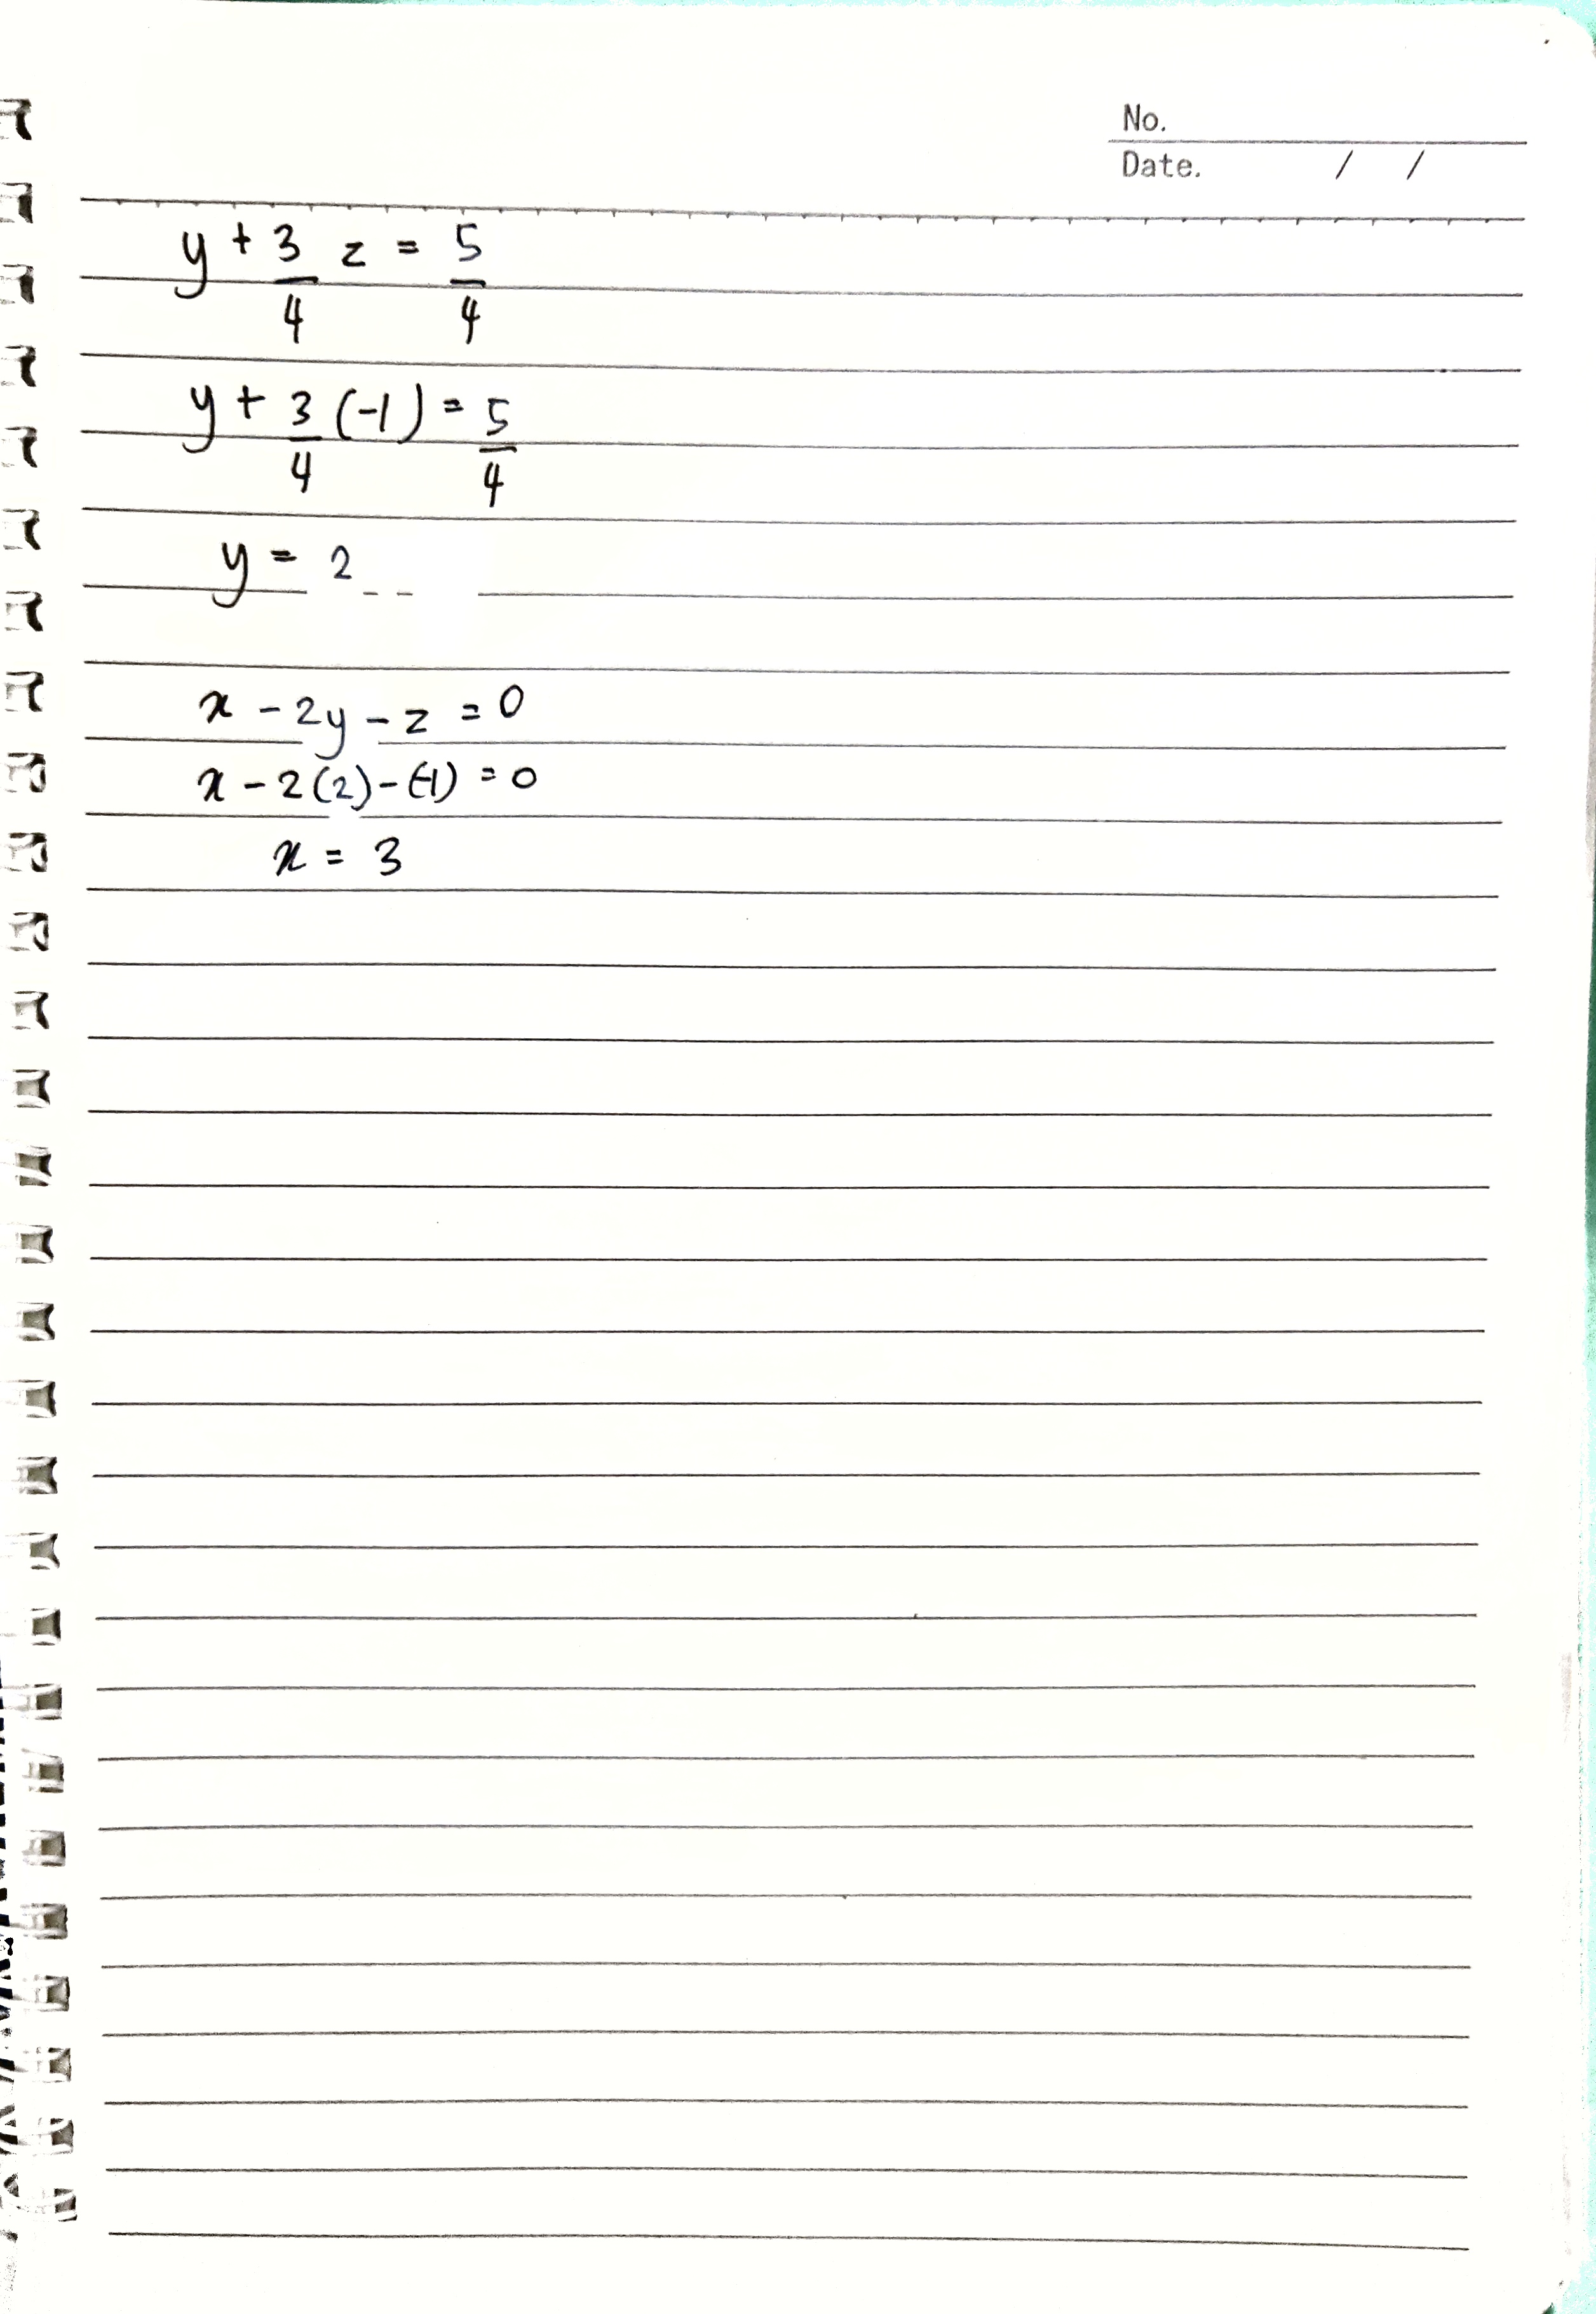 No.
Date. / /
y + 3/4 z = 5/4
y + 3/4 (-1) = 5/4
y = 2
x - 2y - z = 0
x - 2(2) - (-1) = 0
x = 3